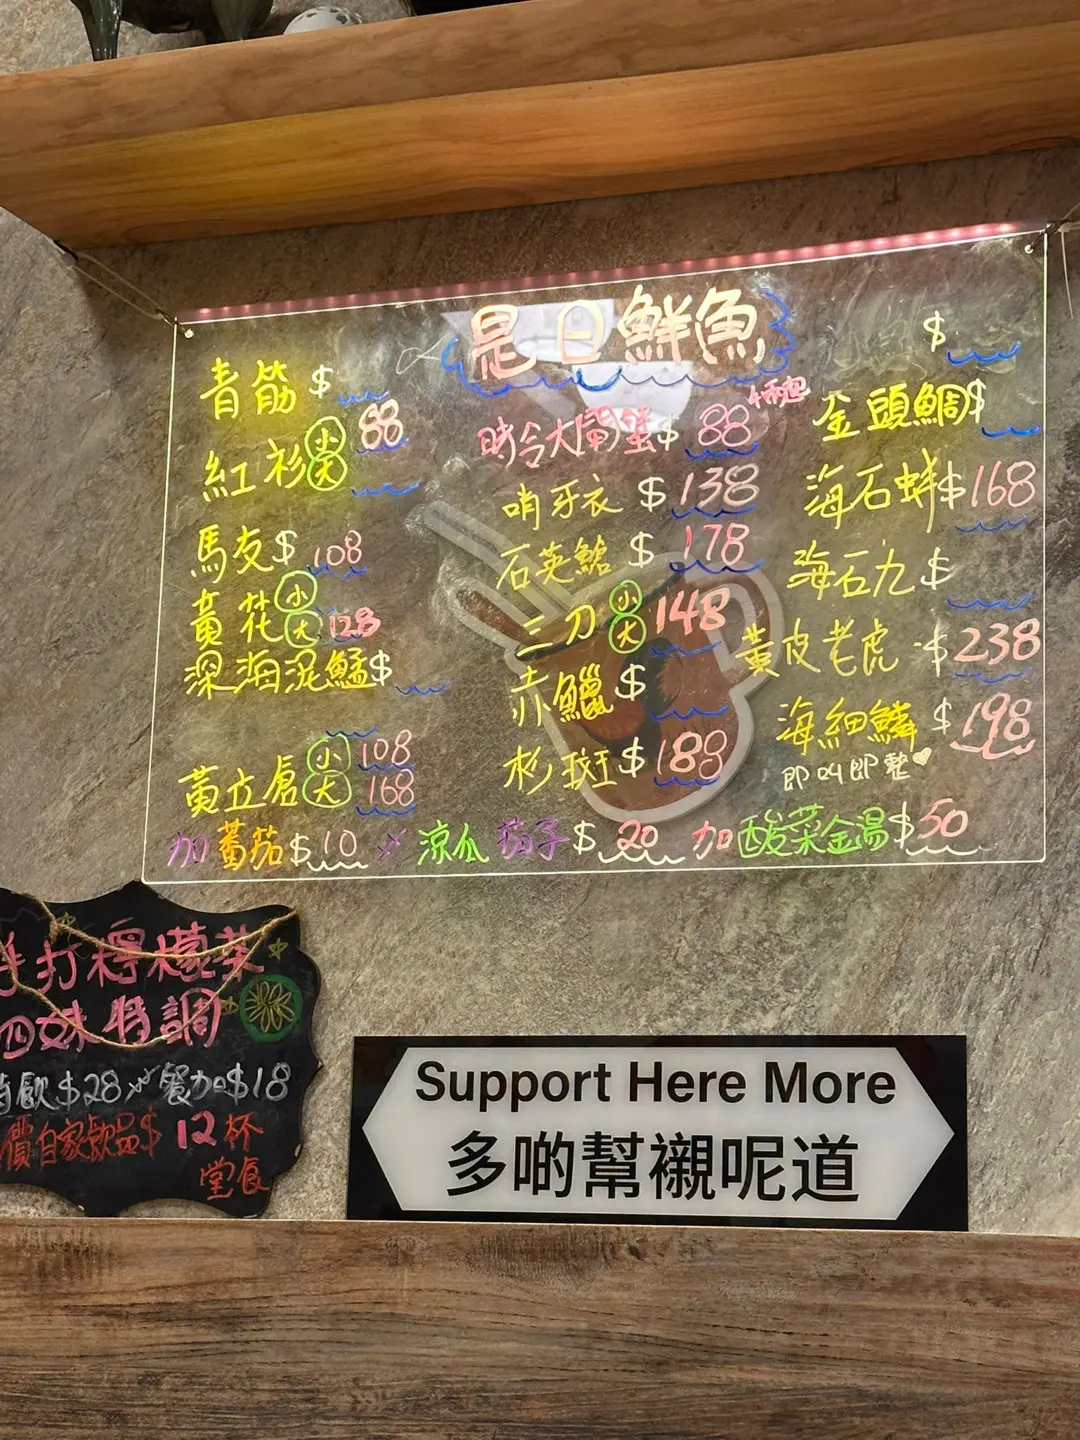 是日鮮魚
青筋 $
紅衫 小 88
大
馬友 $ 108
黃花 小
大 128
深海泥鯭 $
黃立倉 小 108
大 168
時令大閘蟹 $ 88 4両起
哨牙衣 $ 138
石英鯰 $ 178
三刀 小 148
大
赤鱲 $
杉斑 $ 188
$
金頭鯛 $
海石蚌 $ 168
海石九 $
黃皮老虎 $ 238
海細鱗 $ 198
即叫即整
加蕃茄 $10 涼瓜 茄子 $20 加酸菜金湯 $50
手打檸檬茶
四妹特調
飲 $28 餐加 $18
價自家飲品 $ 12 杯
堂食
Support Here More
多啲幫襯呢道